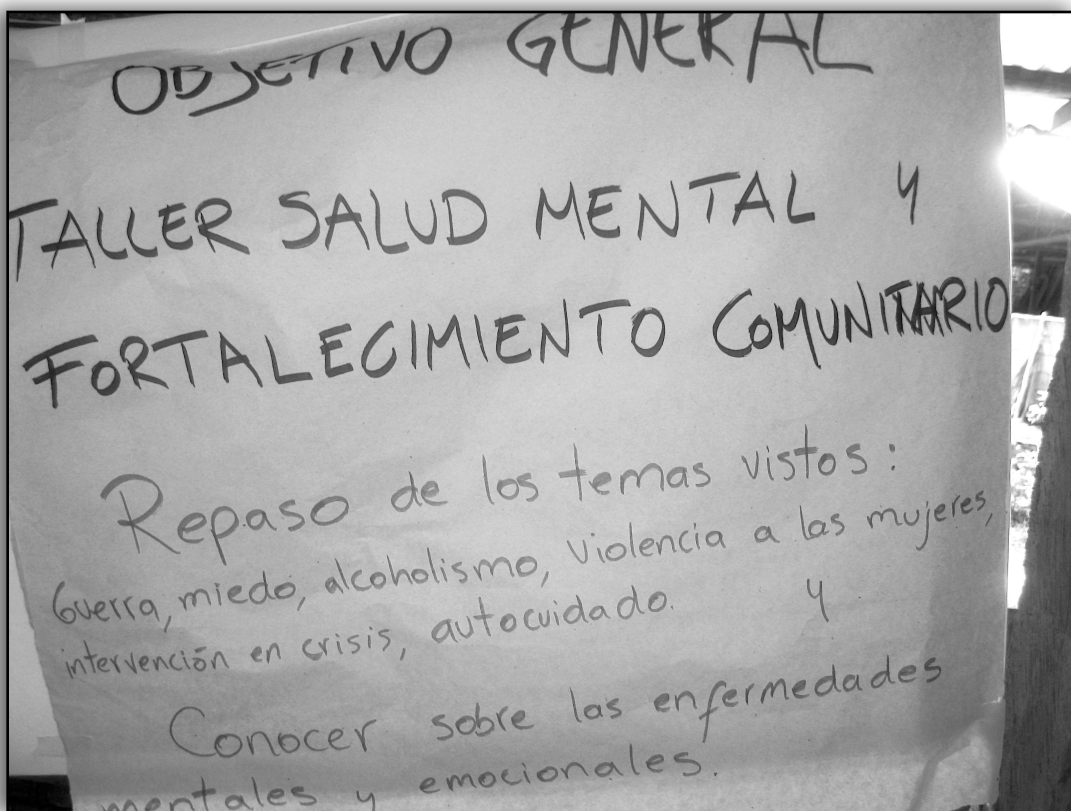 OBJETIVO GENERAL
TALLER SALUD MENTAL Y
FORTALECIMIENTO COMUNITARIO
Repaso de los temas vistos:
Guerra, miedo, alcoholismo, violencia a las mujeres,
intervención en crisis, autocuidado. y
Conocer sobre las enfermedades
mentales y emocionales.